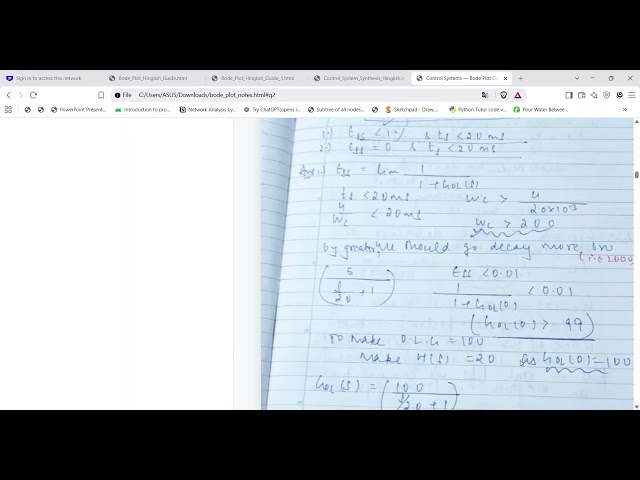 Sign in to access this network
Bode_Plot_Hinglish_Guide.html
Bode_Plot_Hinglish_Guide_1.html
Control_System_Synthesis_Hinglish.l
Control Systems — Bode Plot G
File C:/Users/ASUS/Downloads/bode_plot_notes.html#q2
PowerPoint Present...
Introduction to pro...
Network Analysis by...
Try ChatGPT(opens i
Subtree of all nodes...
Sketchpad - Draw,...
Python Tutor code v...
Pour Water Betwee...
1.) ess < 1% & ts < 20 ms
2.) ess = 0 & ts < 20 ms
Ans 1.) ess = lim 1 / 1 + GOL(s)
ts < 20 ms wc > 4 / 20×10-3
4 / wc < 20 ms wc > 200
should go decay more
(i.e 2000
(5 / s/20 + 1) ess < 0.01
1 / 1 + GOL(0) < 0.01
(GOL(0) > 99)
To make O.L.G = 100
Make H(s) = 20 as GOL(0) = 100
GOL(s) = (100 / s/20 + 1)